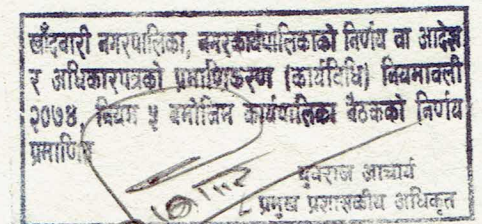 खाँदवारी नगरपालिका, नगरकार्यपालिकाको निर्णय वा आदेश
र अधिकारपत्रको प्रमाणिकरण (कार्यविधि) नियमावली
२०७४, नियम ५ बमोजिम कार्यपालिका बैठकको निर्णय
प्रमाणित
युवराज आचार्य
प्रमुख प्रशासकीय अधिकृत